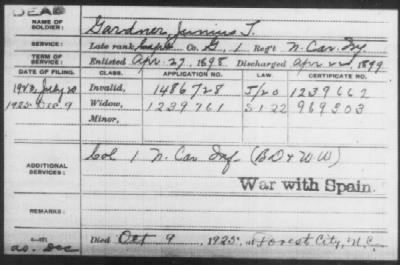 DEAD
NAME OF SOLDIER: Gardner, Junius T.
SERVICE: Late rank, Capt. Co. G, 1 Reg't N. Car. Inf
TERM OF SERVICE: Enlisted Apr. 27, 1898 Discharged Apr. 22, 1899
DATE OF FILING. CLASS. APPLICATION NO. LAW. CERTIFICATE NO.
1922, July 20 Invalid, 1486728 J/20 1239662
1925 Dec 9 Widow, 1239761 S.1-22 969303
Minor,
ADDITIONAL SERVICES: Col 1 N. Car Inf (BD & WW)
War with Spain.
REMARKS:
Died Oct 9, 1925, at Forest City, N.C.